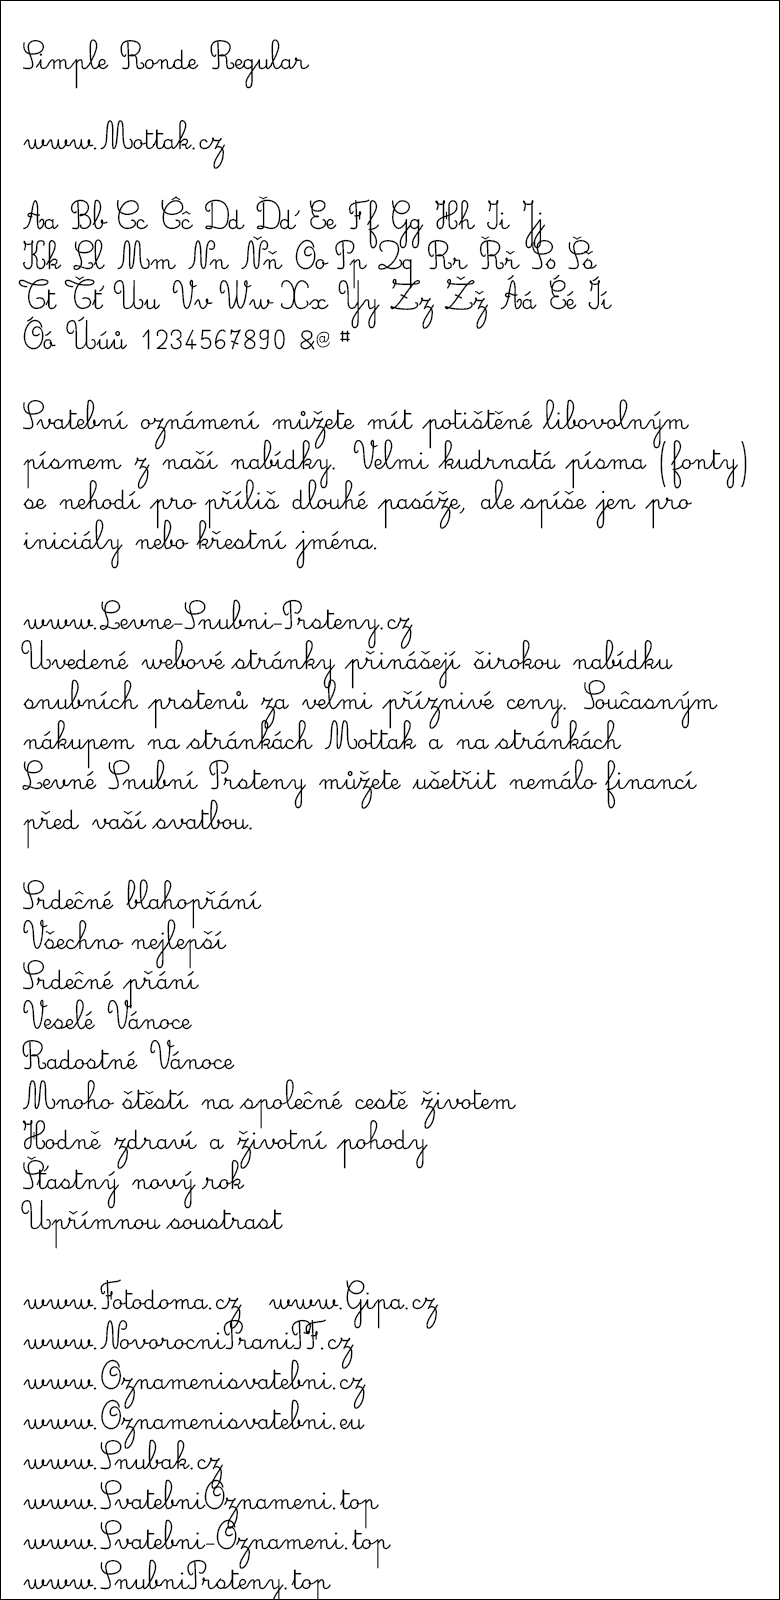 Simple Ronde Regular
www.Mottak.cz
Aa Bb Cc Ĉĉ Dd Ďď Ee Ff Gg Hh Ii Jj
Kk Ll Mm Nn Ňň Oo Pp Qq Rr Řř Ss Šš
Tt Ťť Uu Vv Ww Xx Yy Zz Žž Áá Éé Íí
Óó Úúů 1234567890 &@ #
Svatební oznámení můžete mít potištěné libovolným
písmem z naší nabídky. Velmi kudrnatá písma (fonty)
se nehodí pro příliš dlouhé pasáže, ale spíše jen pro
iniciály nebo křestní jména.
www.Levne-Snubni-Prsteny.cz
Uvedené webové stránky přinášejí širokou nabídku
snubních prstenů za velmi příznivé ceny. Souĉasným
nákupem na stránkách Mottak a na stránkách
Levné Snubní Prsteny můžete ušetřit nemálo financí
před vaší svatbou.
Srdeĉné blahopřání
Všechno nejlepší
Srdeĉné přání
Veselé Vánoce
Radostné Vánoce
Mnoho štěstí na spoleĉné cestě životem
Hodně zdraví a životní pohody
Šťastný nový rok
Upřímnou soustrast
www.Fotodoma.cz www.Gipa.cz
www.NovorocniPraniPF.cz
www.Oznamenisvatebni.cz
www.Oznamenisvatebni.eu
www.Snubak.cz
www.SvatebniOznameni.top
www.Svatebni-Oznameni.top
www.SnubniPrsteny.top